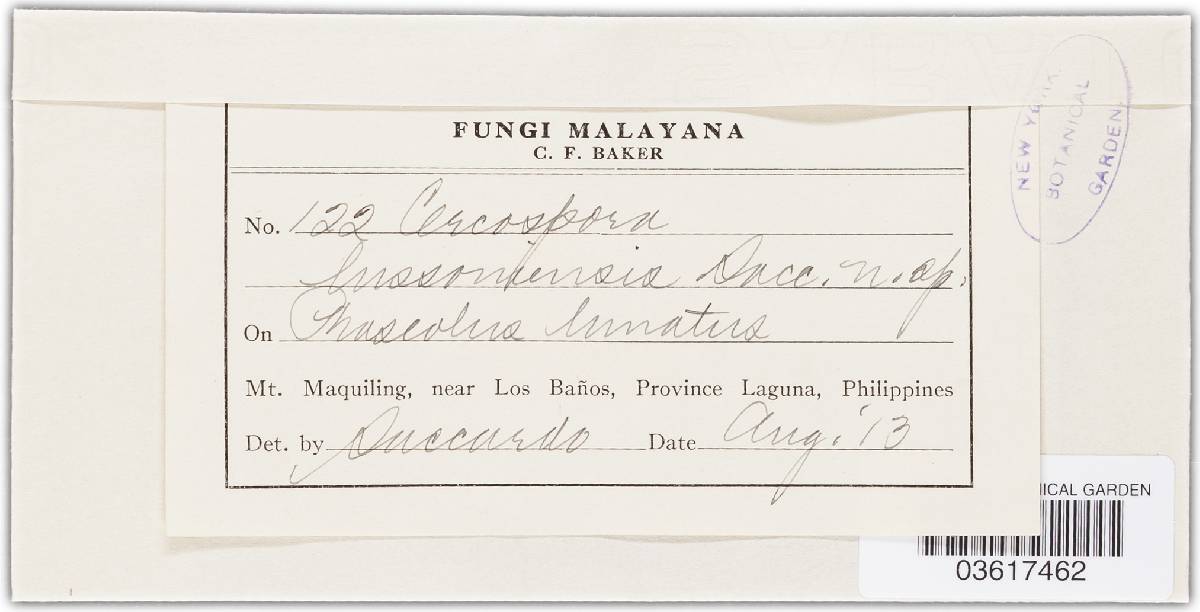 FUNGI MALAYANA
C. F. BAKER
No. 122 Cercospora
lussoniensis Sacc. n. sp.
On Phaseolus lunatus
Mt. Maquiling, near Los Baños, Province Laguna, Philippines
Det. by Saccardo Date Aug. '13
NEW YORK
BOTANICAL
GARDEN
ICAL GARDEN
03617462